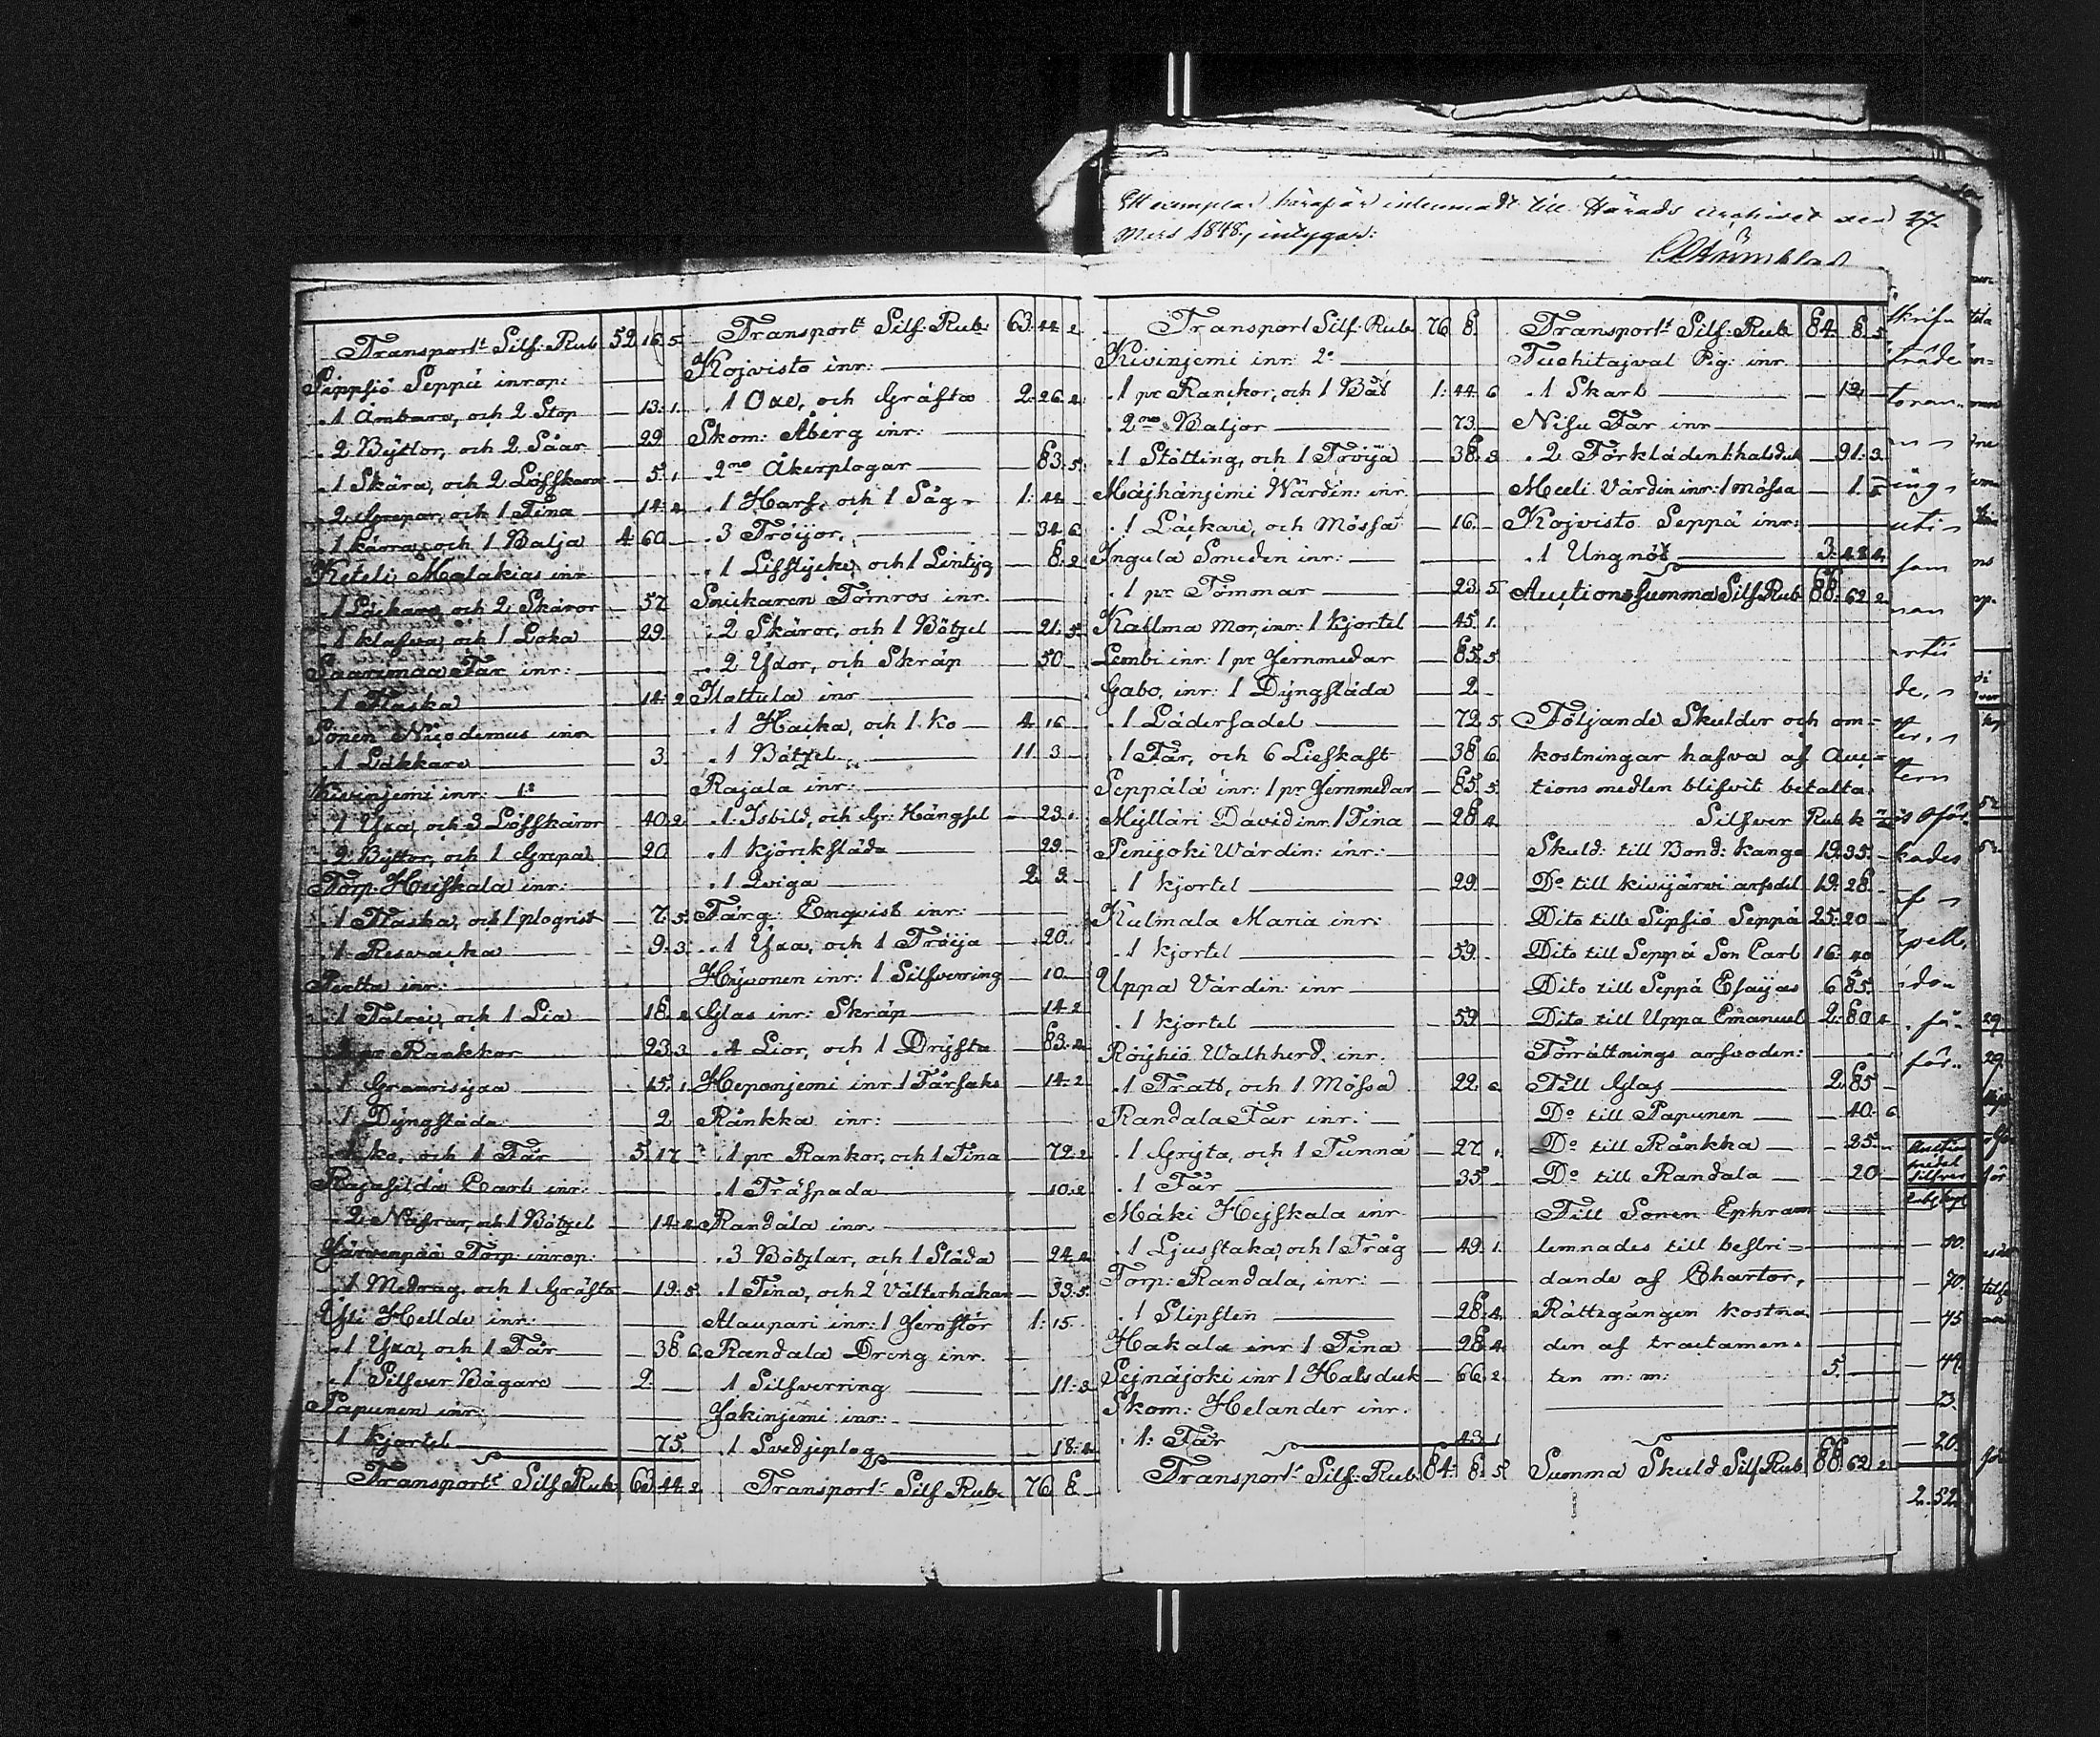 Ett exemplar häraf är inlemnadt till Härads Archivet den 27
Mars 1848, intygar:
Transport Silf: Rub 52 16 5
Sippsiö Seppä inrop:
1 Ämbare, och 2 Stop — 13. 1.
2 Byttor, och 2 Såar — 29
1 Skära, och 2 Löfskäror — 5. 1
2 Grepar, och 1 Tina — 14. 2
1 kärra, och 1 Balja 4 60 —
Keteli Malakias inr
1 Läckare, och 2 Skäror — 57
1 klafwa, och 1 Loka — 29
Saarimaa Far inr:
1 Flaska — 14. 2
Sonen Nicodemus inr
1 Läkkare — 3
Kivinjemi inr: 1:
1 Yxa, och 3 Löfskäror — 40. 2
2 Byttor, och 1 Grepa — 20
Torp. Heiskala inr:
1 Flaska, och 1 plogrist — 7. 5
1 Resvacka — 9. 3
Pertta inr:
1 Talrik, och 1 Lia — 18. 2
2 pr Rankkor — 23. 3
1 Granrisyxa — 15. 1
1 Dyngsläda — 2
1 ko, och 1 Får 5. 17 —
Rajasilda Carl inr:
2 Nafrar, och 1 Bötzel — 14. 2
Järvenpää Torp: inrop:
1 Medrag, och 1 Gräfta — 19. 5
Yli Hellde inr:
1 Yxa, och 1 Får — 38 6
1 Silfver Bägare — 2. —
Papunen inr:
1 kjortel — 75.
Transport Silf Rub: 63 44. 2
Transport Silf: Rub: 63. 44. 2
Kojvisto inr:
1 Oxe, och Gräfta 2. 26. 2
Skom: Åberg inr:
2ne Åkerplogar — 83. 5
1 Harf, och 1 Såg 1. 44 —
3 Tröijor, — 34. 6
1 Lifstycke, och 1 Lintyg — 8. 2
Snickaren Tömros inr.
2 Skäror, och 1 Bötzel — 21. 5
2 Ydor, och Skräp — 50 —
Hattula inr
1 Hacka, och 1 Ko — 4. 16
1 Bötzel — 11 3
Rajala inr:
1 Isbild, och Gr: Hängsel — 23. 1
1 kjöriksläda — 29. —
1 Qviga — 2. 2. —
Färg: Enqvist inr:
1 Yxa, och 1 Tröija — 20.
Hyvonen inr: 1 Silfverring — 10 —
Glas inr: Skräp — 14. 2
4 Lior, och 1 Drysta — 83. 2
Heponjemi inr 1 Fårsaks — 14. 2
Ränkka inr:
1 pr Rankor, och 1 Tina — 72. 2
1 Träspada — 10. 2
Randala inr.
3 Bötzlar, och 1 Släda — 24. 2
1 Tina, och 2 Välterhakar — 33. 5
Alaupari inr: 1 Jernstör 1: 15. —
Randala Dräng inr.
1 Silfverring — 11. 3
Jakinjemi inr:
1 Svedjeplog — 18. 2
Transport Silf Rub: 76 8 —
Transport Silf: Rub 76 8.
Kivinjemi inr: 2:
1 pr Ranckor, och 1 Båt 1: 44. 6
2ne Baljor — 73. —
1 Stötting, och 1 Tröija — 38. 3
Majhänjemi Wärdin: inr.
1 Läckare, och Mössa — 16. —
Ingula Smeden inr:
1 pr Tömmar — 23. 5
Kailma Mor, inr: 1 kjortel — 45. 1.
Lembi inr: 1 pr Jernmedar — 85. 5
Gabo, inr: 1 Dyngsläda — 2 —
1 Lädersadel — 72. 5
1 Får, och 6 Lieskaft — 38. 6
Seppälä inr: 1 pr Jernmedar — 85. 5
Mylläri David inr. 1 Tina — 28. 4
Penijoki Wärdin: inr:
1 kjortel — 29 —
Kulmala Maria inr:
1 kjortel — 59. —
Uppa Värdin: inr
1 kjortel — 59 —
Röyhiö Walhherd. inr.
1 Tratt, och 1 Mössa — 22. 6
Randala Far inr:
1 Gryta, och 1 Tunna — 27 1
1 Får — 35. —
Mäki Hejskala inr
1 Ljusstaka, och 1 Tråg — 49. 1.
Torp: Randala, inr: —
1 Slipsten — 28. 4
Hakala inr 1 Tina — 28. 4
Sejnäjoki inr 1 Halsduk — 66. 2
Skom: Helander inr.
1: Får — 43. 1
Transport Silf: Rub 84: 8. 5
Transport Silf: Rub 84. 8. 5
Tuchitajval Pig: inr.
1 Skarb — 12.
Nisu Far inr
2 Förkläden 1 halsduk — 91. 3
Meeli Värdin inr: 1 mössa — 1. 5
Kojvisto Seppä inr:
1 Ungnöt — 3: 42 4
Auctions summa Silf Rub 88. 62 2
Följande Skulder och om=
kostningar hafva af Auc=
tions medlen blifvit betalta.
Silfver Rub k
Skuld: till Bond: kanga 19. 35. —
Do till kivijärvi arfsdel 19. 28. —
Dito till Sipsiö Seppä 25. 20 —
Dito till Seppä Son Carl 16. 40
Dito till Seppä Esaijas 6 85. —
Dito till Uppa Emanuel 2. 80 2
Förrättnings arfvoden:
Till Glas — 2. 85 —
Do till Papunen — 40. 6
Do till Ränkka — 25. —
Do till Randala — 20 —
Till Sonen Ephraim
lemnades till bestri=
dande af Chartor,
Rättegången kostna
den af tractamen.
ten m: m: 5. —
Summa Skuld Silf Rub 88 62 2